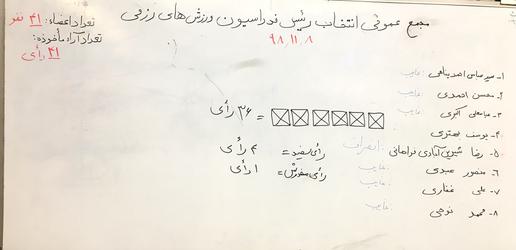 مجمع عمومی انتخاب رئیس فدراسیون ورزش های رزمی
۹۸.۱۱.۸
تعداد اعضاء: ۴۱ نفر
تعداد آراء مأخوذه:
۴۱ رأی
۱- سید عباس احمد پناهی غایب
۲- محسن احمدی غایب
۳- عباسعلی اکبری غایب
۴- یوسف بهتری
۵- رضا شیرین آبادی فراهانی انصراف
۶- منصور عبدی غایب
۷- علی غفاری غایب
۸- محمد نوحی غایب
= ۳۶ رأی
رأی سفید = ۴ رأی
رأی مخدوش = ۱ رأی